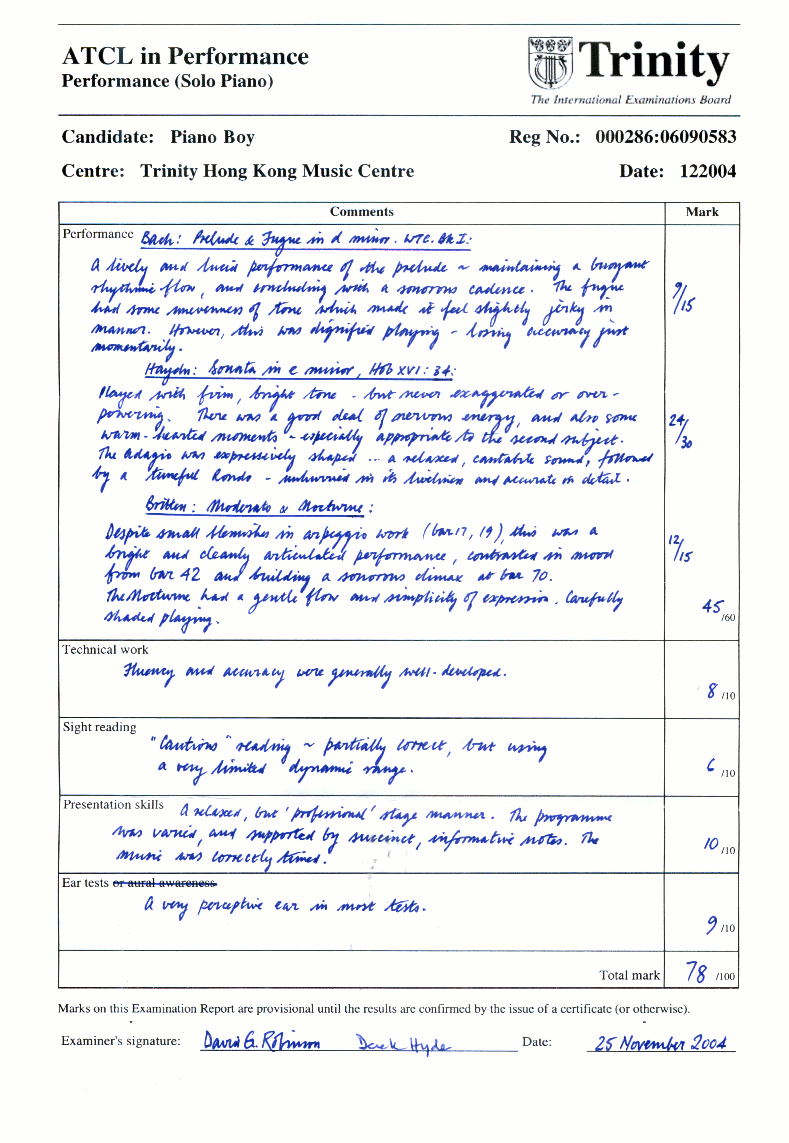 ATCL in Performance
Performance (Solo Piano)
Trinity
The International Examinations Board
Candidate: Piano Boy Reg No.: 000286:06090583
Centre: Trinity Hong Kong Music Centre Date: 122004
Comments Mark
Performance Bach: Prelude & Fugue in d minor. WTC. Bk I:
A lively and lucid performance of the prelude ~ maintaining a buoyant
rhythmic flow, and concluding with a sonorous cadence. The fugue
had some unevenness of tone which made it feel slightly jerky in
manner. However, this was dignified playing - losing accuracy just
momentarily.
9/15
Haydn: Sonata in e minor, Hob XVI: 34:
Played with firm, bright tone - but never exaggerated or over-
powering. There was a good deal of nervous energy, and also some
warm-hearted moments - especially appropriate to the second subject.
The Adagio was expressively shaped ... a relaxed, cantabile sound, followed
by a tuneful Rondo - unhurried in its liveliness and accurate in detail.
24/30
Britten: Moderato & Nocturne:
Despite small blemishes in arpeggio work (bar 17, 19), this was a
bright and cleanly articulated performance, contrasted in mood
from bar 42 and building a sonorous climax at bar 70.
The Nocturne had a gentle flow and simplicity of expression. Carefully
shaded playing.
12/15
45 /60
Technical work
Fluency and accuracy were generally well-developed.
8 /10
Sight reading
"Cautious" reading ~ partially correct, but using
a very limited dynamic range.
6 /10
Presentation skills A relaxed, but 'professional' stage manner. The programme
was varied, and supported by succinct, informative notes. The
music was correctly timed.
10 /10
Ear tests or aural awareness
A very perceptive ear in most tests.
9 /10
Total mark 78 /100
Marks on this Examination Report are provisional until the results are confirmed by the issue of a certificate (or otherwise).
Examiner's signature: David G. Robinson Derek Hyde Date: 25 November 2004